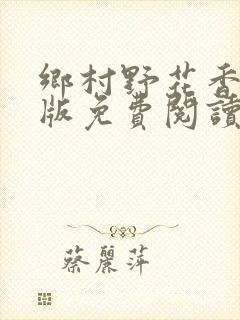 鄉村野花香
版免費閱讀
蔡麗萍